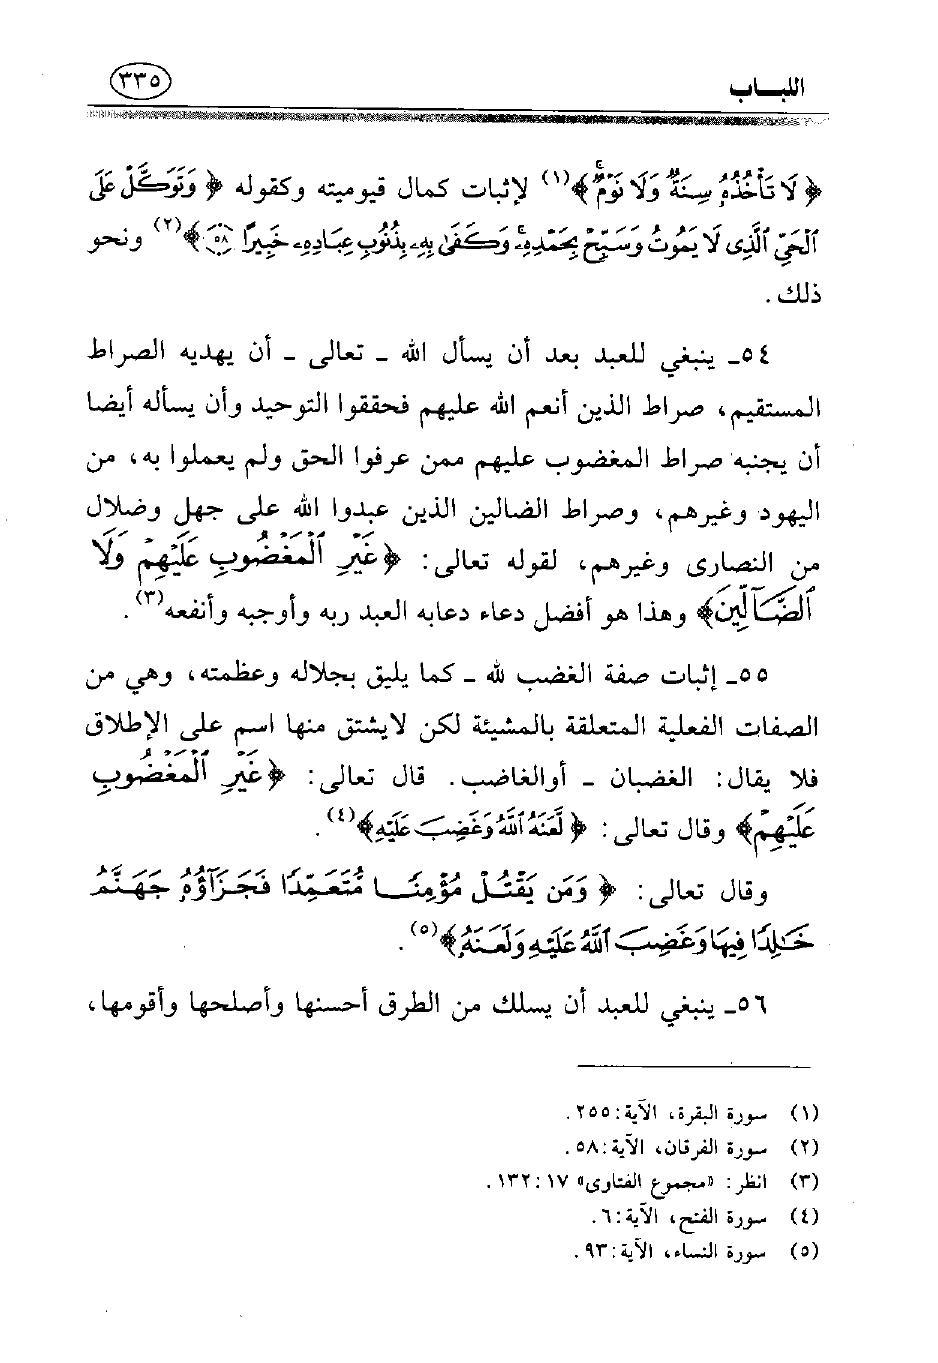 اللبـــاب
٣٣٥
﴿ لَا تَأْخُذُهُ سِنَةٌ وَلَا نَوْمٌ ﴾(١) لإثبات كمال قيوميته وكقوله ﴿ وَتَوَكَّلْ عَلَى
ٱلْحَيِّ ٱلَّذِى لَا يَمُوتُ وَسَبِّحْ بِحَمْدِهِۦ وَكَفَىٰ بِهِۦ بِذُنُوبِ عِبَادِهِۦ خَبِيرًا ٥٨ ﴾(٢) ونحو
ذلك .
٥٤ـ ينبغي للعبد بعد أن يسأل الله ـ تعالى ـ أن يهديه الصراط
المستقيم، صراط الذين أنعم الله عليهم فحققوا التوحيد وأن يسأله أيضا
أن يجنبه صراط المغضوب عليهم ممن عرفوا الحق ولم يعملوا به، من
اليهود وغيرهم، وصراط الضالين الذين عبدوا الله على جهل وضلال
من النصارى وغيرهم، لقوله تعالى: ﴿ غَيْرِ ٱلْمَغْضُوبِ عَلَيْهِمْ وَلَا
ٱلضَّآلِّينَ ﴾ وهذا هو أفضل دعاء دعابه العبد ربه وأوجبه وأنفعه(٣).
٥٥ـ إثبات صفة الغضب لله ـ كما يليق بجلاله وعظمته، وهي من
الصفات الفعلية المتعلقة بالمشيئة لكن لايشتق منها اسم على الإطلاق
فلا يقال: الغضبان ـ أوالغاضب. قال تعالى: ﴿ غَيْرِ ٱلْمَغْضُوبِ
عَلَيْهِمْ ﴾ وقال تعالى: ﴿ لَعَنَهُ ٱللَّهُ وَغَضِبَ عَلَيْهِ ﴾(٤).
وقال تعالى: ﴿ وَمَن يَقْتُلْ مُؤْمِنًا مُّتَعَمِّدًا فَجَزَآؤُهُ جَهَنَّمُ
خَـٰلِدًا فِيهَا وَغَضِبَ ٱللَّهُ عَلَيْهِ وَلَعَنَهُ ﴾(٥).
٥٦ـ ينبغي للعبد أن يسلك من الطرق أحسنها وأصلحها وأقومها،
(١) سورة البقرة، الآية: ٢٥٥.
(٢) سورة الفرقان، الآية: ٥٨.
(٣) انظر: «مجموع الفتاوى» ١٧: ١٣٢.
(٤) سورة الفتح، الآية: ٦.
(٥) سورة النساء، الآية: ٩٣.